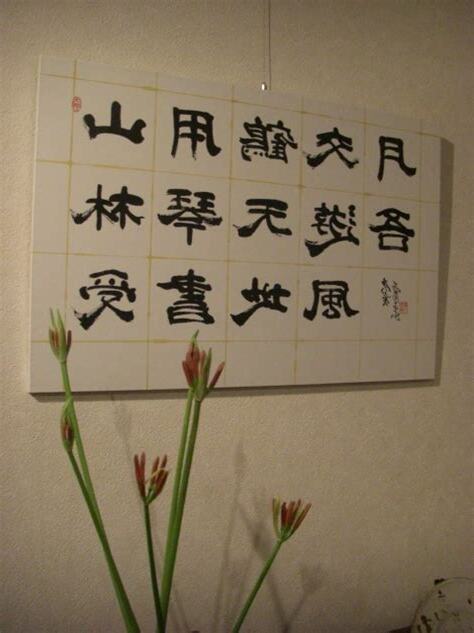 山林受
用琴書
鶴天地
交遊風
月吾